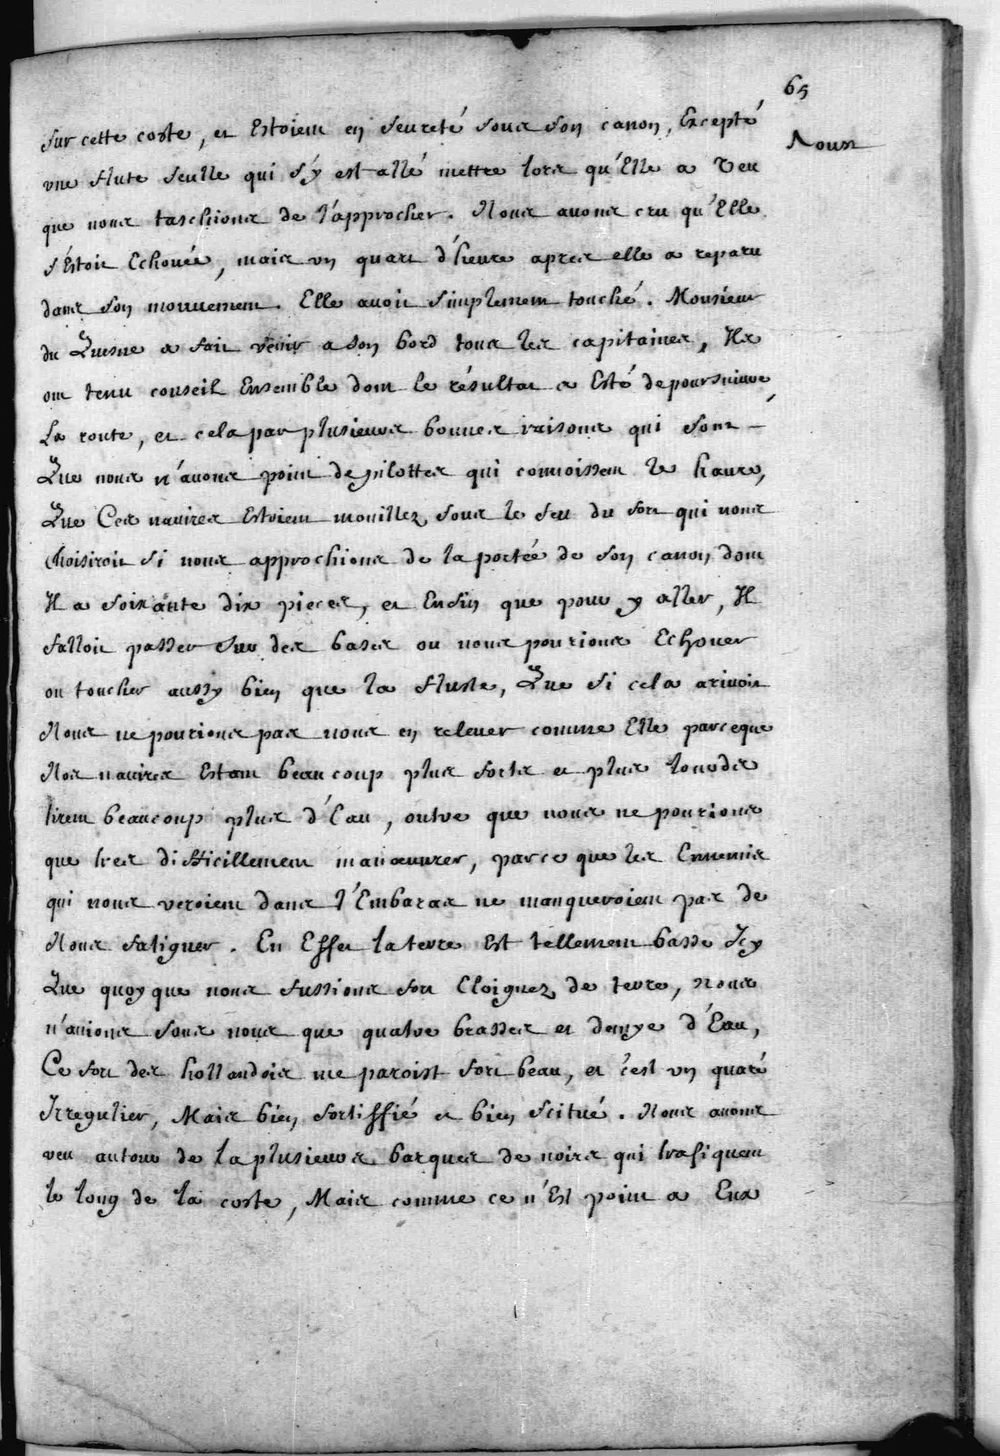 65
Aoust
sur cette coste, et Estoient en seureté sous son canon, Excepté
vne flute seulle qui s'y est allé mettre lors qu'Elle a veu
que nous taschions de l'approcher. Nous auons cru qu'Elle
s'Estoit Echouée, mais vn quart d'heure apres elle a reparu
dans son mouuement. Elle auoit simplement touché. Monsieur
du Quesne a fait venir a son bord tous les capitaines, Ils
ont tenu conseil Ensemble dont le résultat a Esté de poursuiure
La route, et cela par plusieurs bonnes raisons qui sont –
Que nous n'auons point de pilottes qui connoissent le haure,
Que Ces nauires Estoient mouillez sous le feu du fort qui nous
choisiroit si nous approchions de la portée de son canon, dont
Il a soixante dix pieces, et Enfin que pour y aller, Il
falloit passer sur des bases ou nous pourions Echouer
ou toucher aussy bien que la fluste, Que si cela ariuoit
Nous ne pourions pas nous en releuer comme Elle parceque
Nos nauires Estant beaucoup plus forts et plus lourds
tirent beaucoup plus d'Eau, outre que nous ne pourions
que tres difficillement manœuurer, parce que les Ennemis
qui nous veroient dans l'Embaras ne manqueroient pas de
Nous fatiguer. En Effet la terre Est tellement basse Icy
Que quoyque nous fussions fort Eloignez de terre, Nous
n'auions sous nous que quatre brasses et demye d'Eau,
Ce fort des hollandois me paroist fort beau, et c'est vn quaré
Irregulier, Mais bien fortiffié et bien scitué. Nous auons
veu autour de la plusieurs barques de noirs qui trafiquent
le long de la coste, Mais comme ce n'Est point a Eux